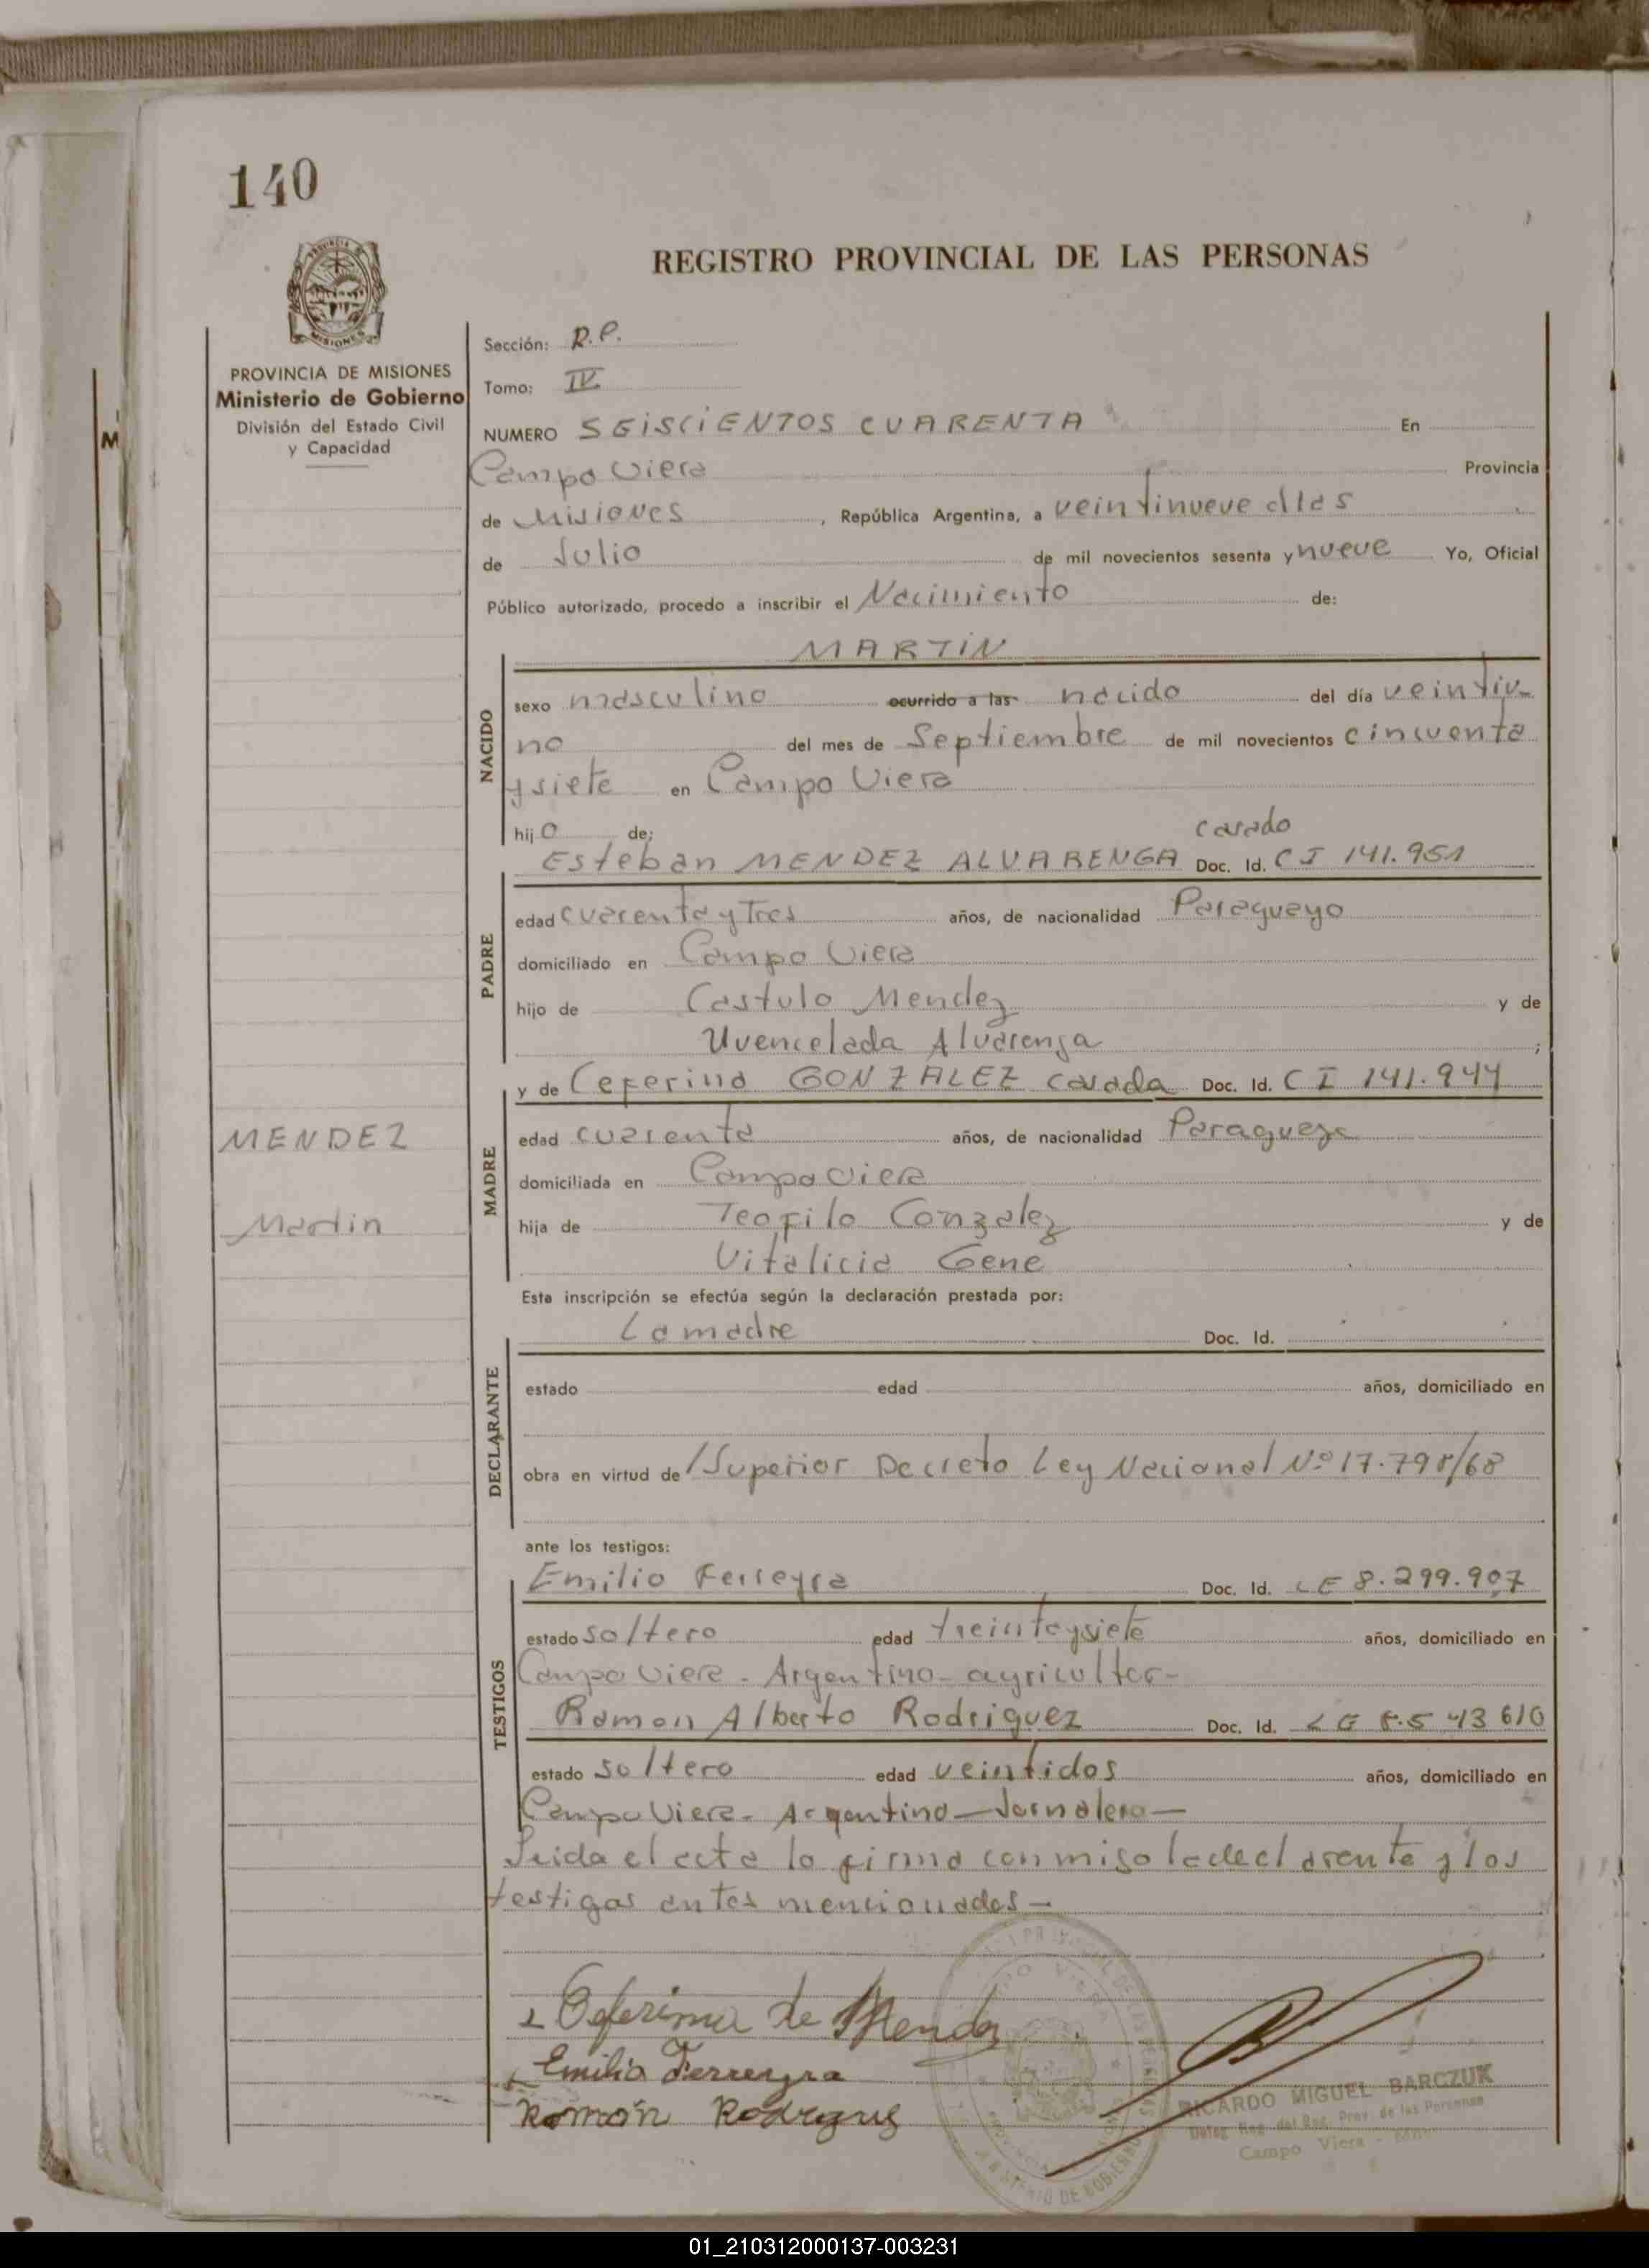 140
REGISTRO PROVINCIAL DE LAS PERSONAS
PROVINCIA DE MISIONES
Ministerio de Gobierno
División del Estado Civil
y Capacidad
M
Sección: R.P.
Tomo: IV
NUMERO SEISCIENTOS CUARENTA En
Campo Viera Provincia
de Misiones, República Argentina, a veintinueve dias
de Julio de mil novecientos sesenta y nueve Yo, Oficial
Público autorizado, procedo a inscribir el Nacimiento de:
MARTIN
NACIDO
sexo masculino ocurrido a las nacido del día veintiu-
no del mes de Septiembre de mil novecientos cincuenta
y siete en Campo Viera
hijo de;
casado
Esteban MENDEZ ALVARENGA Doc. Id. CI 141.951
PADRE
edad cuarenta y Tres años, de nacionalidad Paraguayo
domiciliado en Campo Viera
hijo de Castulo Mendez y de
Uvencelada Alvarenga;
y de Ceferina GONZALEZ casada Doc. Id. CI 141.944
MADRE
edad cuarenta años, de nacionalidad Paraguaya
domiciliada en Campo Viera
hija de Teofilo Gonzalez y de
Vitalicia Gene
MENDEZ
Martin
Esta inscripción se efectúa según la declaración prestada por:
La madre Doc. Id.
DECLARANTE
estado edad años, domiciliado en
obra en virtud de /Superior Decreto Ley Nacional Nº 17.798/68
ante los testigos:
Emilio Ferreyra Doc. Id. LE 8.299.907
TESTIGOS
estado soltero edad treinta y siete años, domiciliado en
Campo Viera - Argentino - agricultor -
Ramon Alberto Rodriguez Doc. Id. LE 8.543610
estado soltero edad veintidos años, domiciliado en
Campo Viera - Argentino - Jornalero -
Leida el acta la firma conmigo la declarante y los
testigos antes mencionados -
Ceferima de Mendez
Emilio Ferreyra
Ramón Rodrigues
RICARDO MIGUEL BARCZUK
Reg. del Reg. Prov. de las Personas
Campo Viera -
01_210312000137-003231